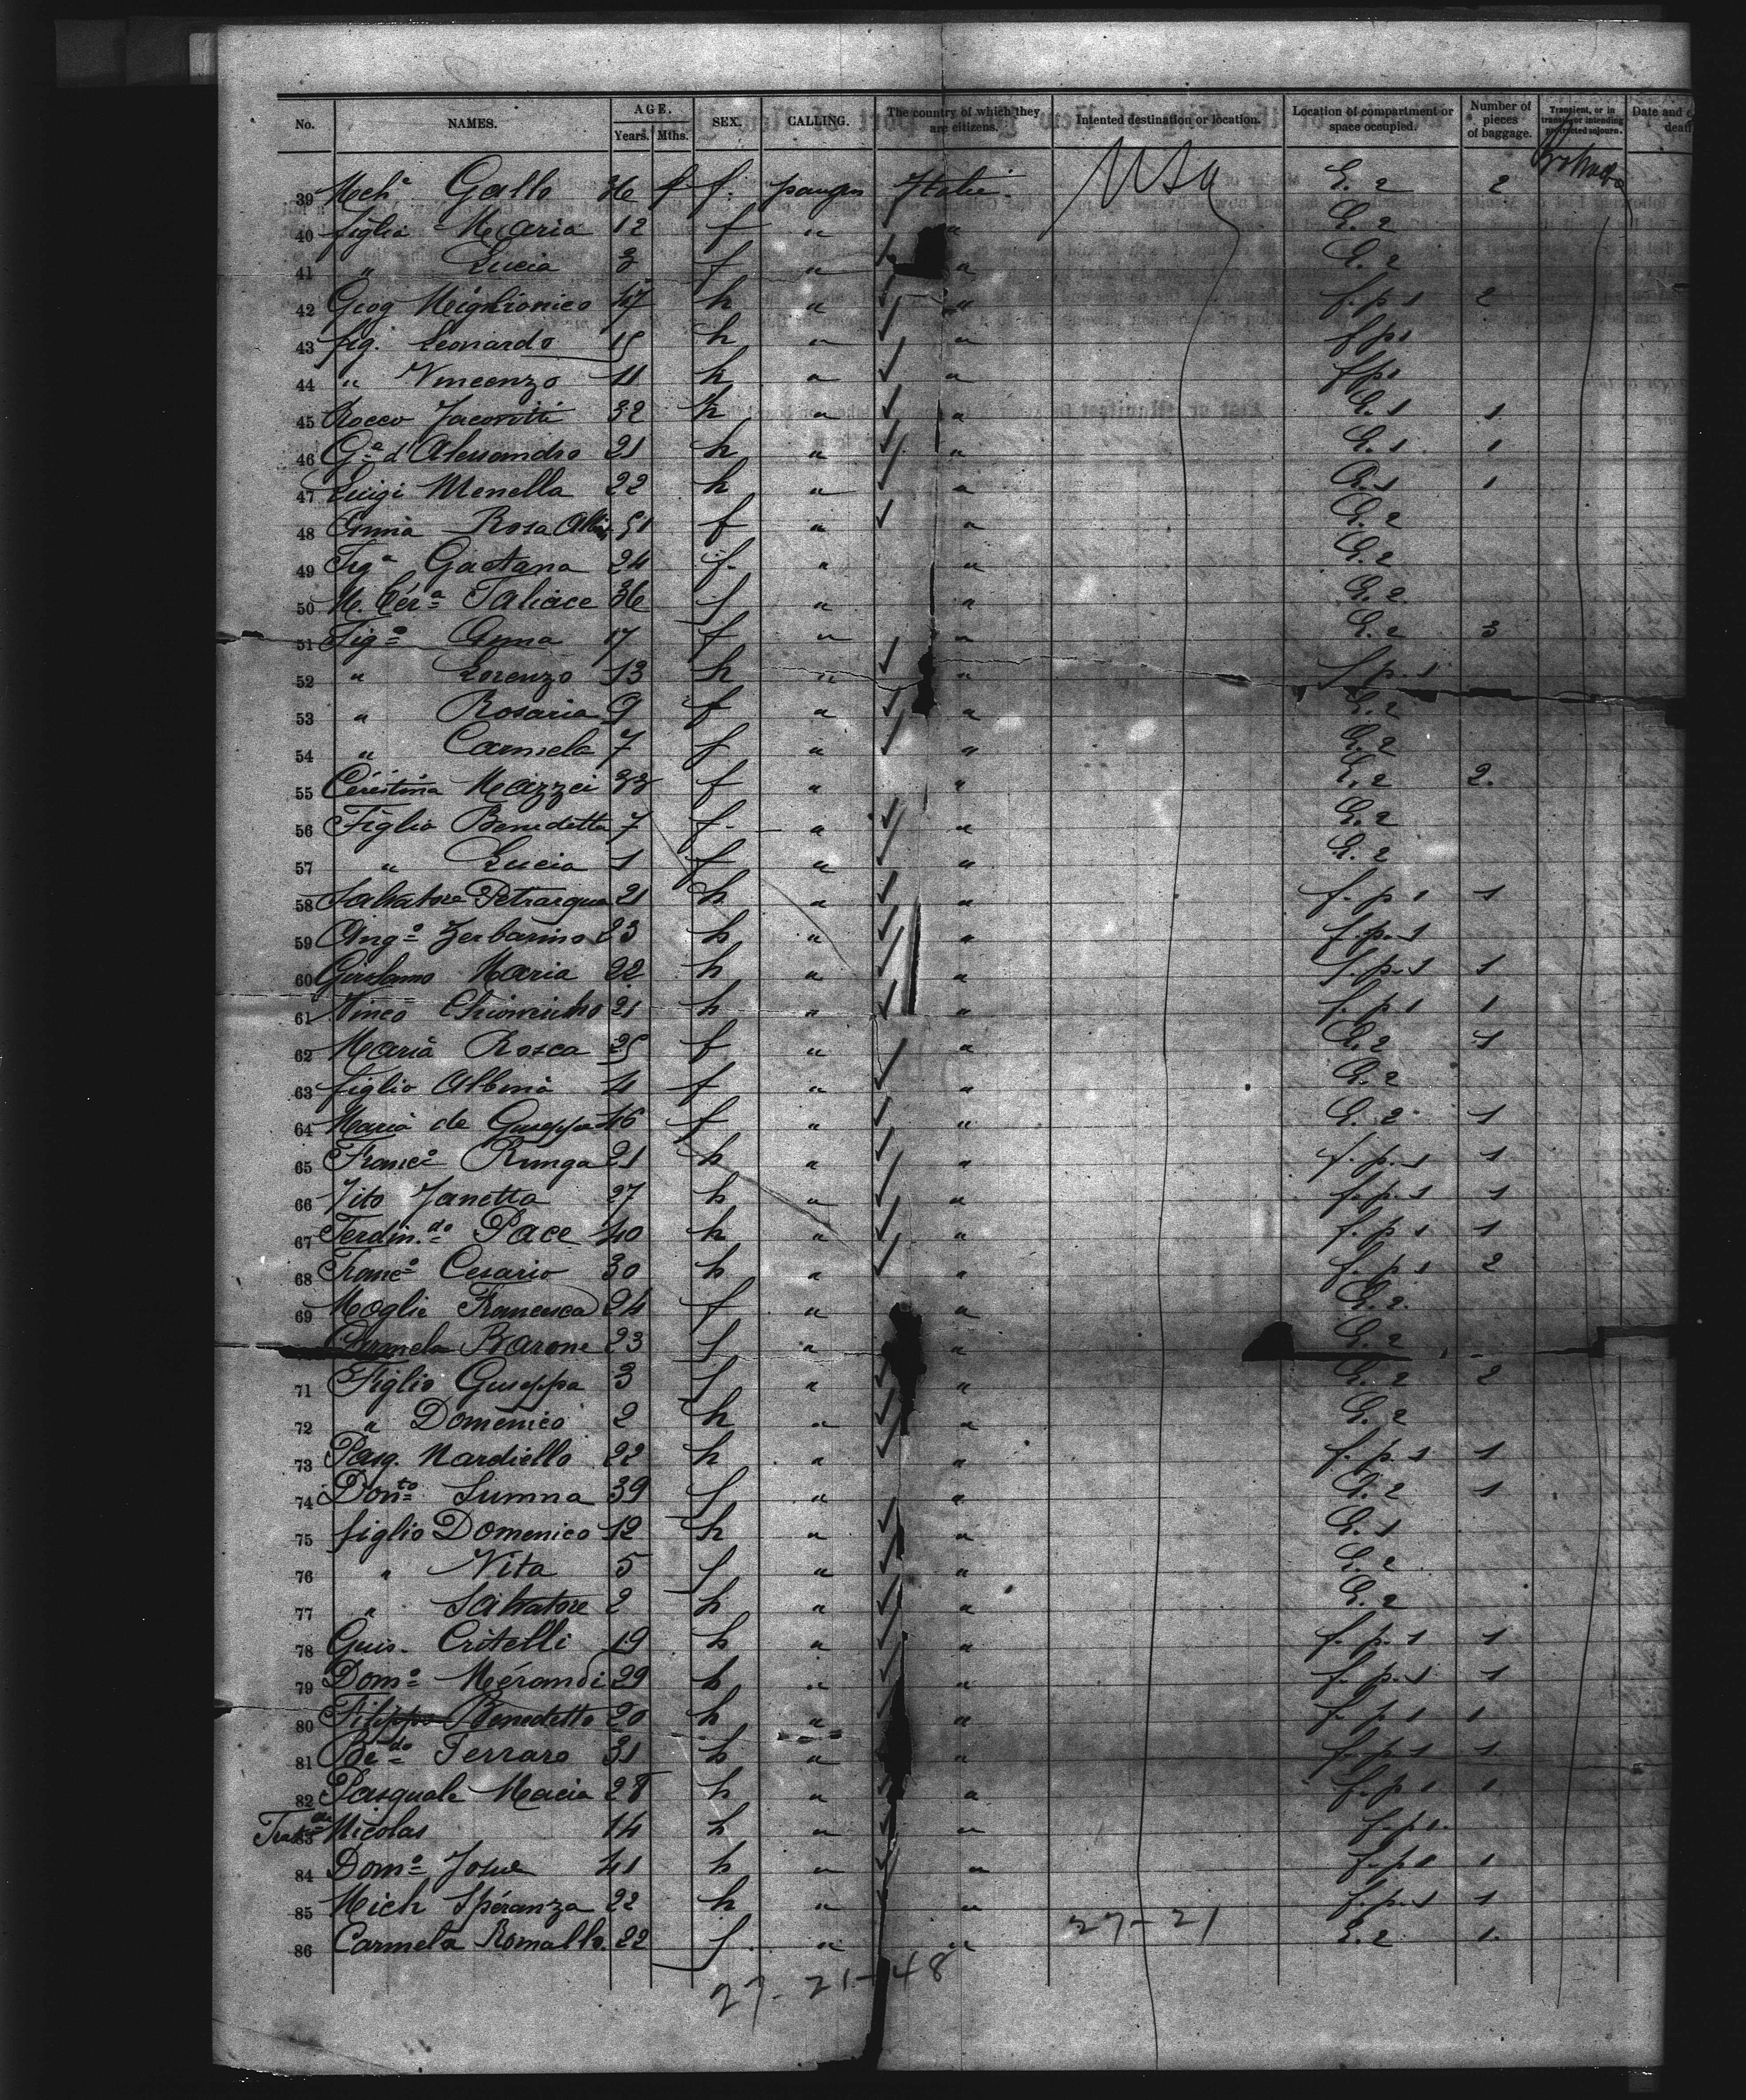 No. NAMES. AGE. Years. Mths. SEX. CALLING. The country of which they are citizens. Intented destination or location. Location of compartment or space occupied. Number of pieces of baggage. Transient, or in transit, or intending protracted sojourn. Date and
39 Mich Gallo 36 f. Italie USA E. 2 2
40 figlia Maria 12 f " " E. 2
41 " Lucia 3 f " " E. 2
42 Giog Miglionico 47 h " " f. p. 1 2
43 fig. Leonardo 15 h " " f p 1
44 " Vincenzo 11 h " " f p 1
45 Rocco 32 h " " E. 1 1
46 G.e d'Alessandro 21 h " " E. 1 1
47 Luigi Menella 22 h " " E. 1 1
48 Rosa 51 f " " E. 2
49 Fig.a Gaetana 24 f. " " E. 2
50 Taliace 36 f " " E. 2
51 Fig.o Anna 17 f " " E. 2 3
52 " Lorenzo 13 h " " f p. 1
53 " Rosaria 9 f " " E. 2
54 " Carmela 7 f " " E. 2
55 Mazzei 33 f " " E. 2 2.
56 Figlia Benedetta 7 f. " " E. 2
57 " Lucia 1 f " " E. 2
58 Salvatore Petrarqua 21 h " " f. p 1 1
59 Ang.o Zerbarino 23 h " " f. p. 1
60 Girolamo Maria 22 h " " f. p. 1 1
61 21 h " " f. p 1 1
62 Maria Rosca 25 f " " E. 2 1
63 figlia Albina 4 f " " E. 2
64 Maria de Guseppa 46 f " " E. 2 1
65 Franc.o Runga 21 h " " f. p. 1 1
66 Vito Janetta 27 h " " f. p. 1 1
67 Ferdin.do Pace 40 h " " f. p 1 1
68 Franc.o Cesario 30 h " " f. p. 1 2
69 Moglie Francesca 24 f " " E. 2.
Carmela Barone 23 f " " E. 2
71 Figlio Guseppa 3 f " " E. 2 2
72 " Domenico 2 h " " E. 2
73 Pasq. Nardiello 22 h " " f. p. 1 1
74 Don.to Summa 39 f " " E. 2 1
75 figlio Domenico 12 h " " E. 1
76 " Vita 5 f " " E. 2
77 " Salvatore 2 h " " E. 2
78 Guis. Critelli 19 h " " f. p. 1 1
79 Dom.o Mérandi 29 h " " f. p. 1 1
80 Filippo Benedetto 20 h " " f. p 1 1
81 Be.do Ferraro 31 h " " f. p 1 1
82 Pasquale Macia 28 h " " f. p 1 1
83 Nicolas 14 h " " f. p 1.
84 Dom.o Josue 41 h " " f. p 1 1
85 Mich Spéranza 22 h " " f. p. 1 1
86 Carmela Romallo. 22 f. " " 27-21 E. 2 1.
27-21-48